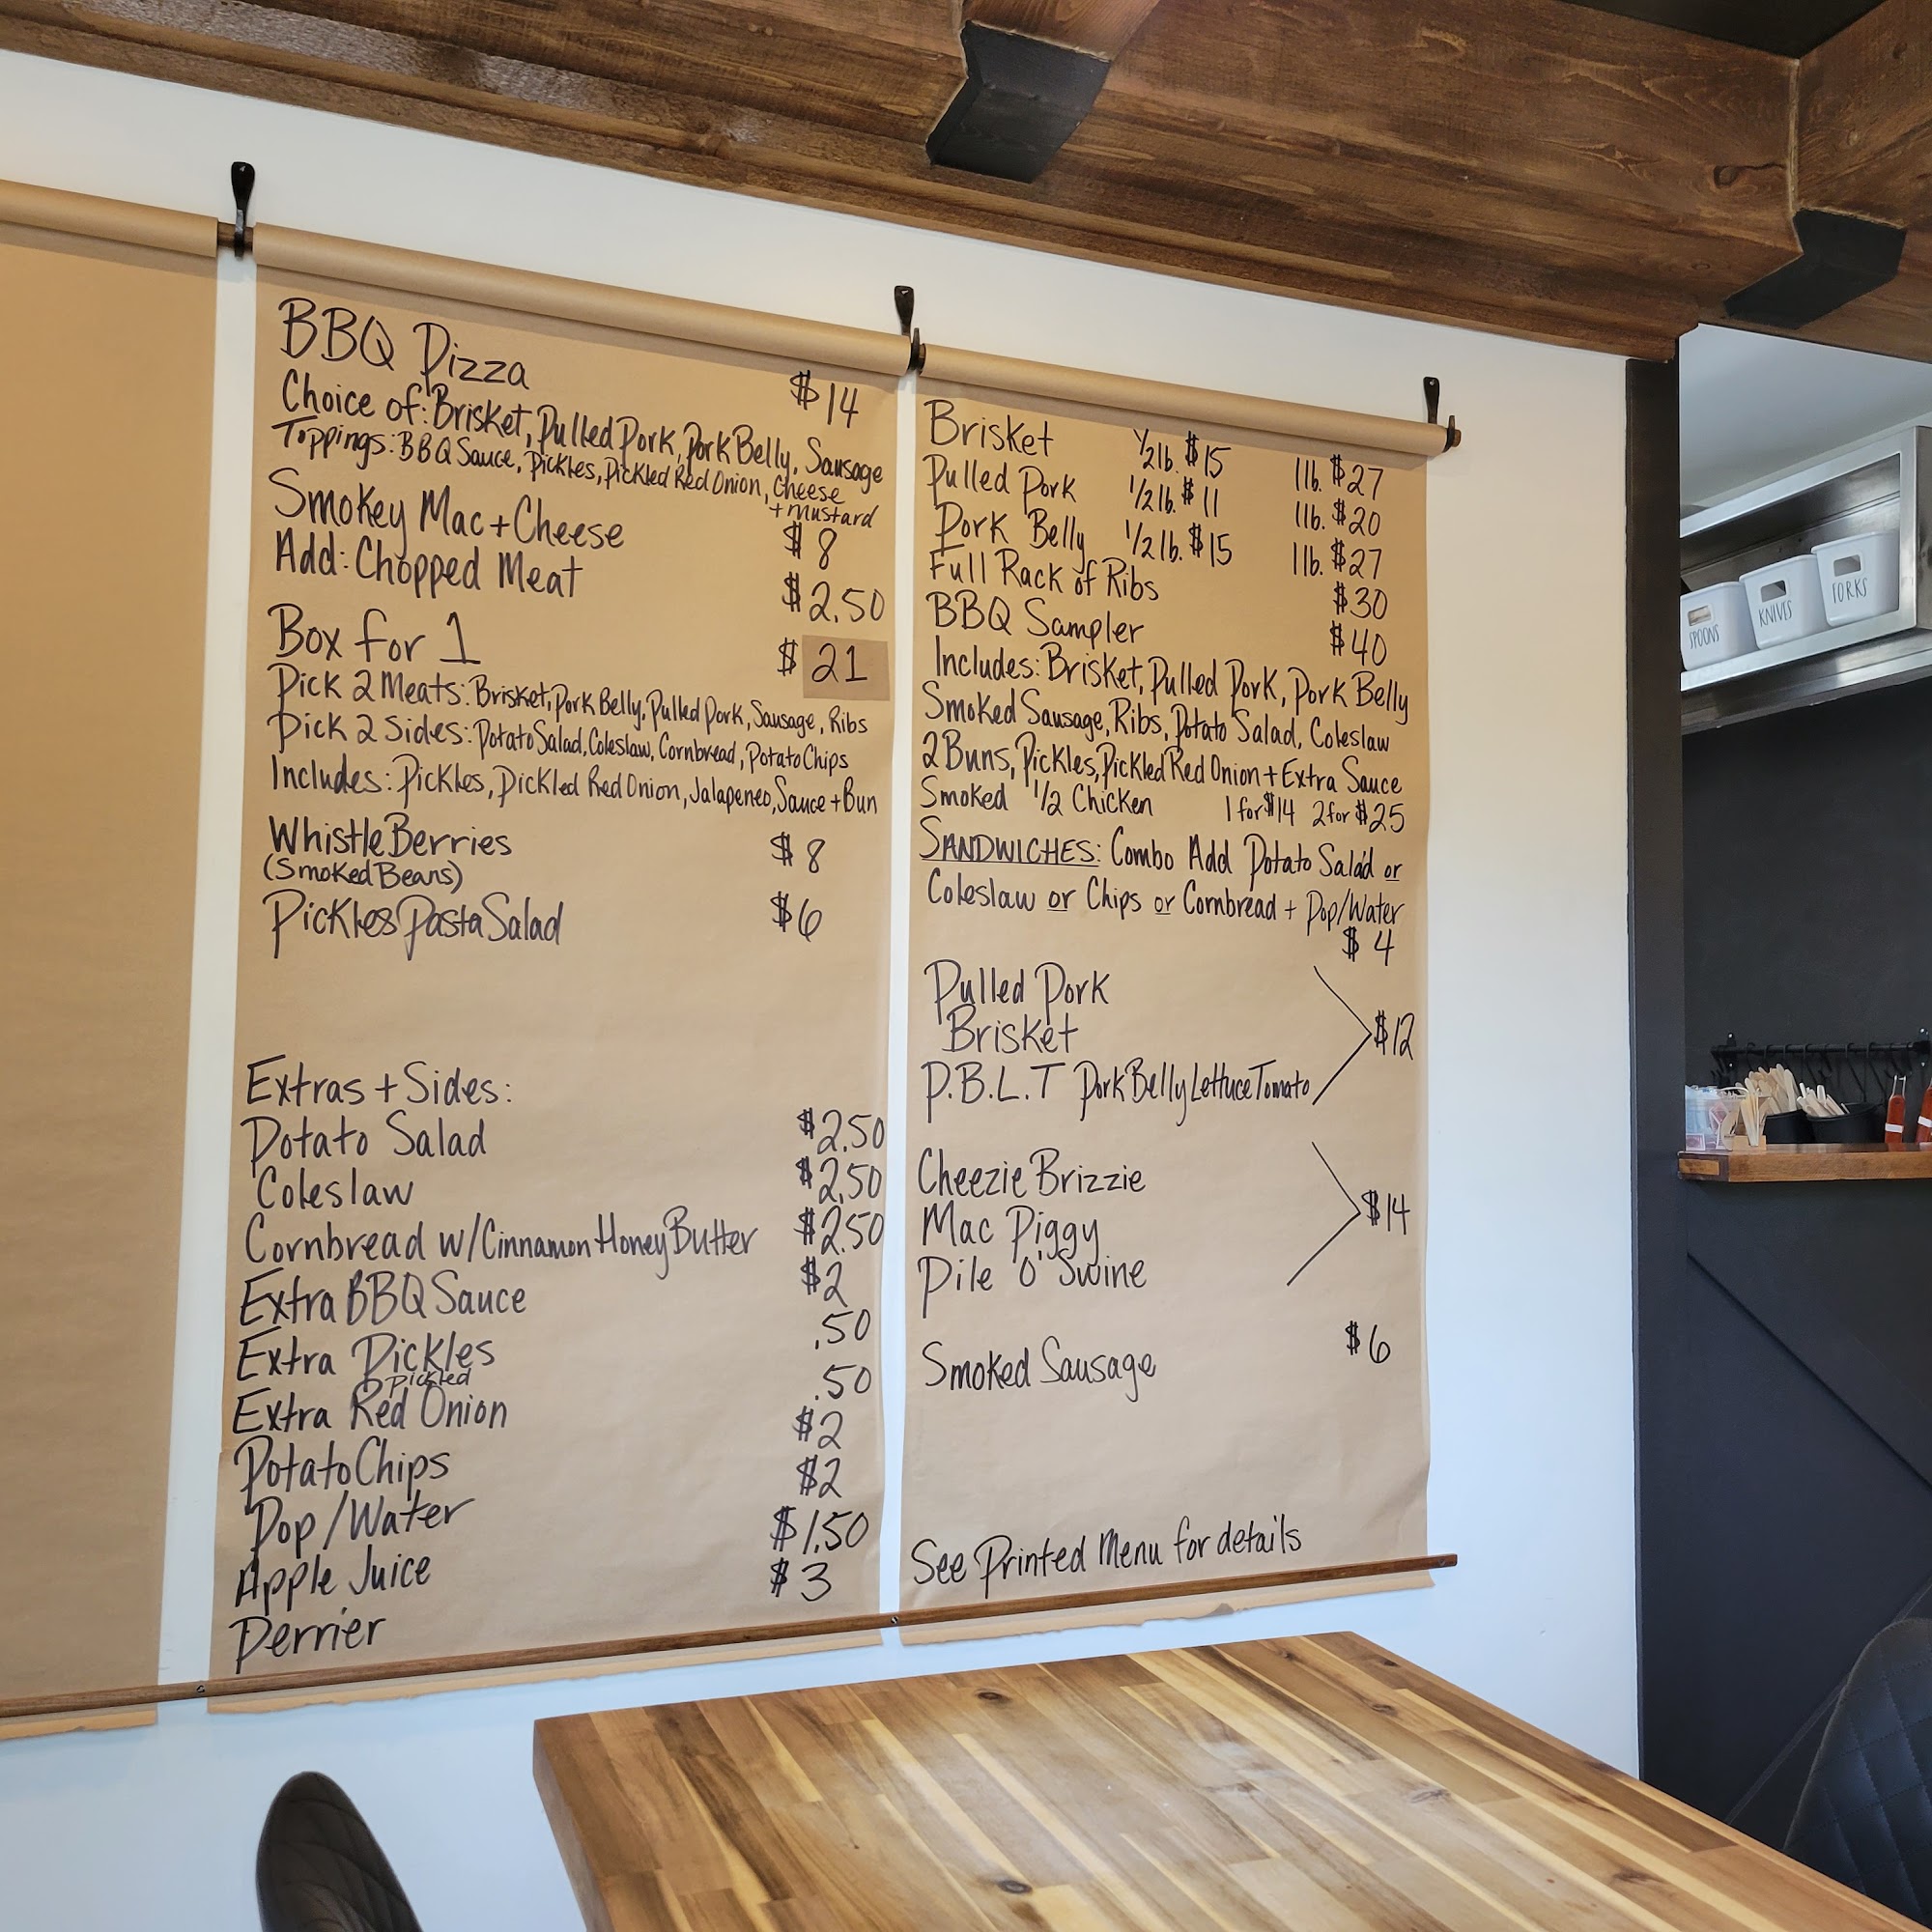 BBQ Pizza $14
Choice of: Brisket, Pulled Pork, Pork Belly, Sausage
Toppings: BBQ Sauce, Pickles, Pickled Red Onion, Cheese
+ mustard
Smokey Mac + Cheese $8
Add: Chopped Meat $2.50
Box for 1 $21
Pick 2 Meats: Brisket, Pork Belly, Pulled Pork, Sausage, Ribs
Pick 2 Sides: Potato Salad, Coleslaw, Cornbread, Potato Chips
Includes: Pickles, Pickled Red Onion, Jalapeneo, Sauce + Bun
WhistleBerries $8
(Smoked Beans)
Pickles Pasta Salad $6
Extras + Sides:
Potato Salad $2.50
Coleslaw $2.50
Cornbread w/Cinnamon Honey Butter $2.50
Extra BBQ Sauce $2
Extra Pickles .50
Pickled
Extra Red Onion .50
Potato Chips $2
Pop/Water $2
Apple Juice $1.50
Perrier $3
Brisket 1/2 lb. $15 1 lb. $27
Pulled Pork 1/2 lb. $11 1 lb. $20
Pork Belly 1/2 lb. $15 1 lb. $27
Full Rack of Ribs $30
BBQ Sampler $40
Includes: Brisket, Pulled Pork, Pork Belly
Smoked Sausage, Ribs, Potato Salad, Coleslaw
2 Buns, Pickles, Pickled Red Onion + Extra Sauce
Smoked 1/2 Chicken 1 for $14 2 for $25
SANDWICHES: Combo Add Potato Salad or
Coleslaw or Chips or Cornbread + Pop/Water
$4
Pulled Pork
Brisket $12
P.B.L.T Pork Belly Lettuce Tomato
Cheezie Brizzie
Mac Piggy $14
Pile O' Swine
Smoked Sausage $6
See Printed Menu for details
SPOONS
KNIVES
FORKS